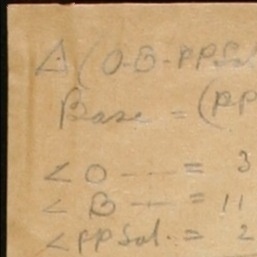 Δ (O-B-PPSol
Base = (PP
< O --- = 3
< B --- = 11
< PP Sol. = 2